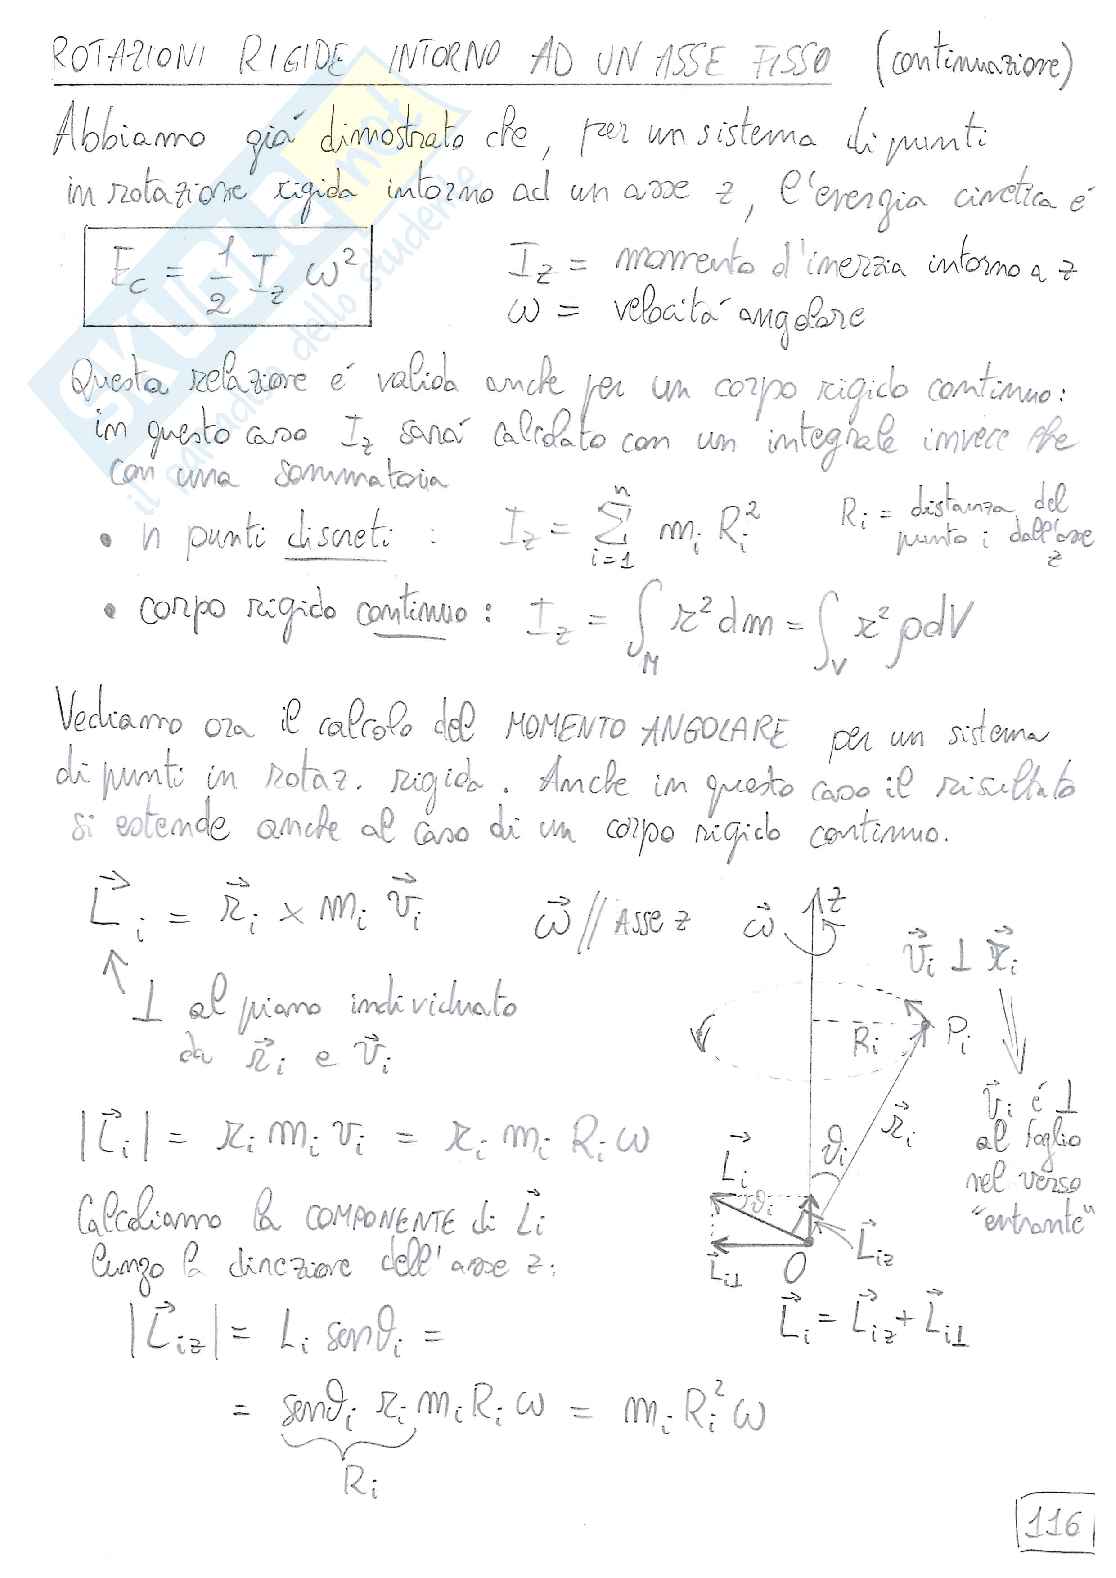 ROTAZIONI RIGIDE INTORNO AD UN ASSE FISSO (continuazione)
Abbiamo giá dimostrato che, per un sistema di punti
in rotazione rigida intorno ad un asse z, l'energia cinetica é
E_c = 1/2 I_z ω²
I_z = momento d'inerzia intorno a z
ω = velocitá angolare
Questa relazione é valida anche per un corpo rigido continuo:
in questo caso I_z sará calcolato con un integrale invece che
con una sommatoria
• n punti discreti : I_z = Σ_{i=1}^{n} m_i R_i²
R_i = distanza del
punto i dall'asse
z
• corpo rigido continuo : I_z = ∫_M r² dm = ∫_V r² ρdV
Vediamo ora il calcolo del MOMENTO ANGOLARE per un sistema
di punti in rotaz. rigida. Anche in questo caso il risultato
si estende anche al caso di un corpo rigido continuo.
L⃗_i = r⃗_i × m_i v⃗_i
⊥ al piano individuato
da r⃗_i e v⃗_i
|L⃗_i| = r_i m_i v_i = r_i m_i R_i ω
Calcoliamo la COMPONENTE di L⃗_i
lungo la direzione dell'asse z:
|L⃗_iz| = L_i senθ_i =
= senθ_i r_i m_i R_i ω = m_i R_i² ω
R_i
ω⃗ // ASSE z
ω⃗
z
v⃗_i ⊥ r⃗_i
R_i
P_i
v⃗_i é ⊥
al foglio
nel verso
"entrante"
r⃗_i
θ_i
L⃗_i
θ_i
L⃗_iz
L⃗_i⊥
O
L⃗_i = L⃗_iz + L⃗_i⊥
116
SKUOLA.net
il paradiso dello studente